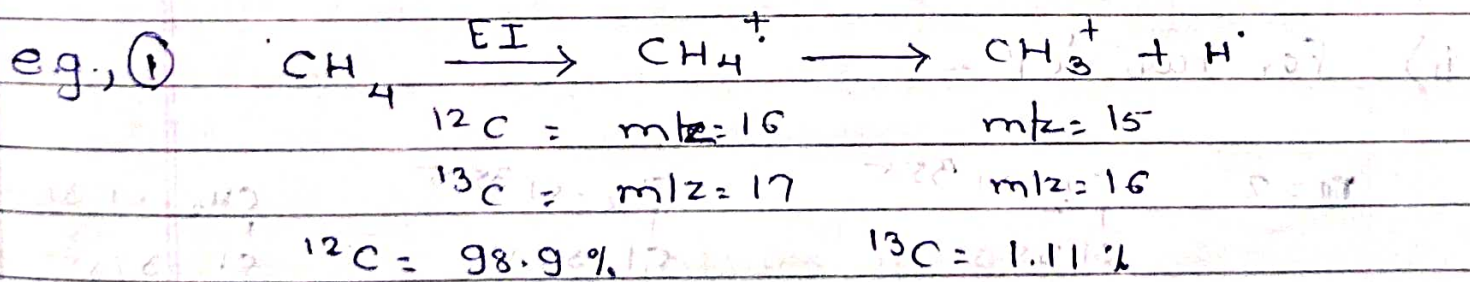 e.g., ① CH₄ EI → CH₄⁺· → CH₃⁺ + H·
¹²C = m/z = 16 m/z = 15
¹³C = m/z = 17 m/z = 16
¹²C = 98.9 % ¹³C = 1.11 %